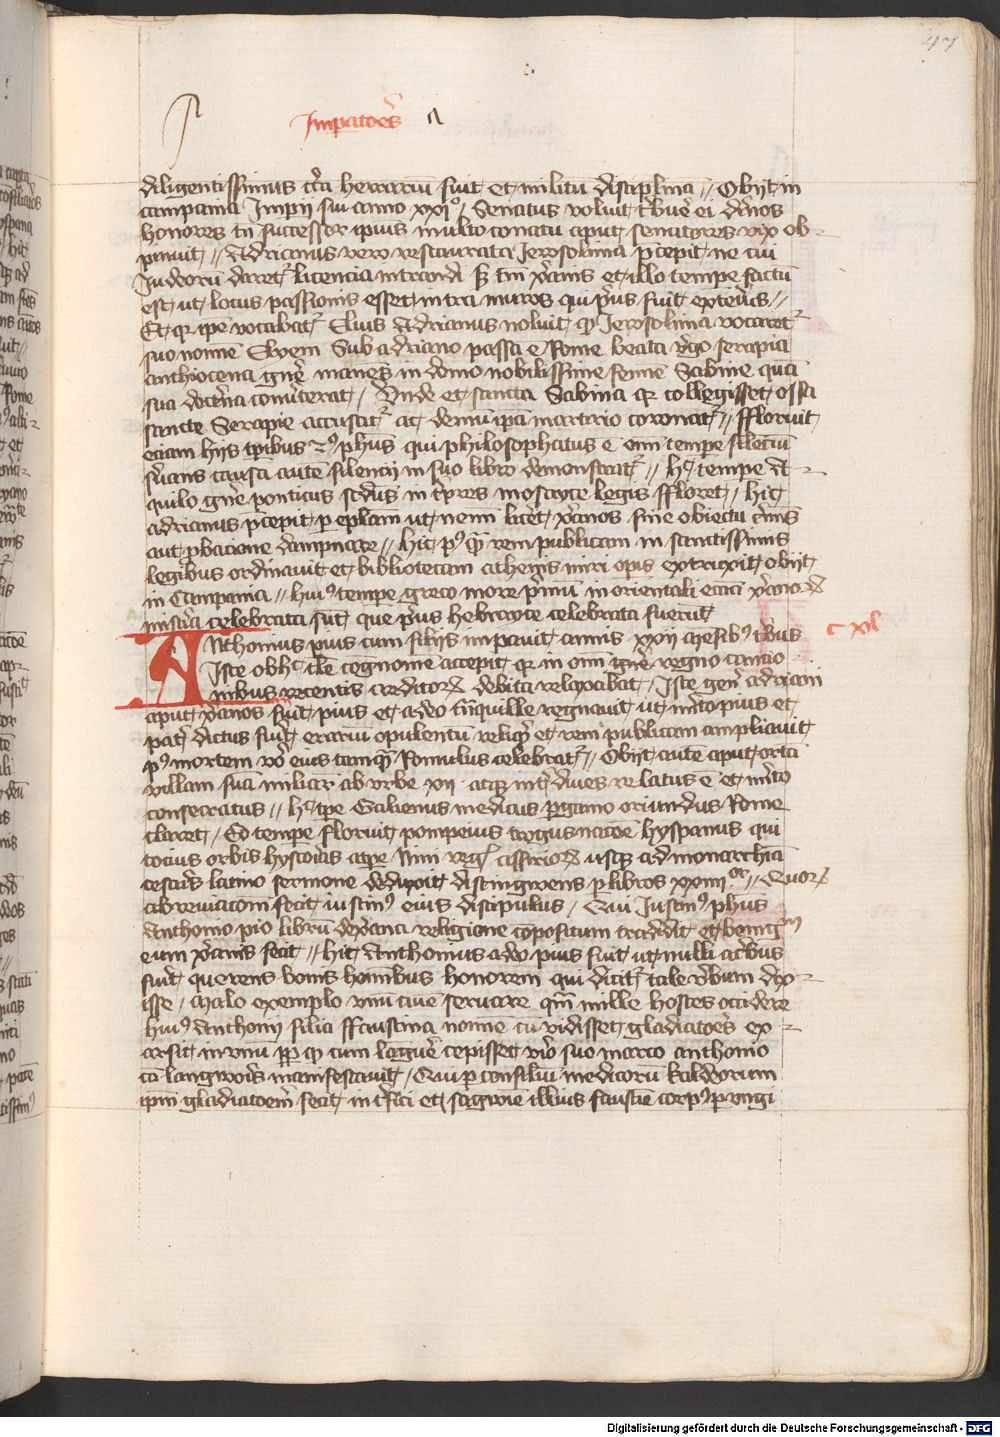 47
Impatoes
diligentissimus cca herrariu fuit et militu disciplina // Obijt in
campania Impij sui anno xxi° / Senatus voluit tbue ei dinos
honores tn successor ipius multo conatu aput senatores vix ob-
tinuit // Adrianus vero restaurata Jerosolima pcepit ne cui
Judeoru daret licencia intrandi sz tm xpianis et illo tempe factu
est ut locus passionis esset intra muros qui pus fuit exterius //
Et qr ipe vocabat Elius Adrianus voluit qd Jerosolima vocaret
suo nomine Elyem Sub adriano passa e Rome beata virgo serapia
anthiocena gne manens in domo nobilissime femine Sabine qua
sua doctina conuterat / Vnde et sancta Sabina qr collegisset ossa
sancte Serapie accusat ac demu ipa martirio coronat // ffloruit
eciam hijs tpibus phus qui philosophatus e omi tempe silenciu
suans causa aute silencij in suo libro demonstrat // hoc tempe A-
quilo gne ponticus scdus int pres mosayce legis ffloret / hic
adrianus pcepit p eplam ut nemi licet xpianos sine obiectu crimis
aut pbacione dampnare // hic pus rem publicam in sanctissimis
legibus ordinauit et bibliotecam athenis miri opis extruxit obijt
in Campania // huius tempe greco more primu in orientali eccia xpianor
misteria celebrata sut que prius hebrayce celebrata fuerut
c xl
Anthonius pius cum filijs impauit annis xxij mesibus tribus
Iste ob hoc tale cognomen accepit qr in omi gne regno cautio-
nibus recentis creditor debita relaxabat / Iste gener adriani
aput xpianos fuit pius et adeo tnquille regnauit ut merito pius et
pater dictus fuit erariu opulentu reliquit et rem publicam ampliauit
post mortem vero eius tamquam Romulus celebrat // Obijt aute aput orta
villam sua miliar ab vrbe xij atque inter diuos relatus e et merito
consecratus // hoc tpe Galienus medicus pgamo oriundus Rome
claret / Eo tempe floruit pompeius trogus nacoe hyspanus qui
tocius orbis hystorias a tpe Nini regis assirior usque ad monarchia
cesaris latino sermone deduxit distingwens p libros xliiii // Quor
abreuiacom fecit iustinus eius discipulus / Qui Justinus phus
Anthonio pio libru de xpiana religione copositum tradidit et benignum
eum xpianis fecit // hic Anthonius adeo pius fuit ut nulli acerbus
fuit querens bonis hominibus honorem qui dicit tale verbum dix-
isse / Malo exemplo vnu ciue seruare quam mille hostes occidere
huius Anthonij filia ffaustina nomine cu vidisset gladiatores ex-
arsit in vnu pp qd cum langue cepisset viro suo marco anthonio
ca langworis manifestauit / Qui p consiliu medicoru kaldeorum
ipm gladiatoem fecit intfici et sagwine illius faustie corpus pungi